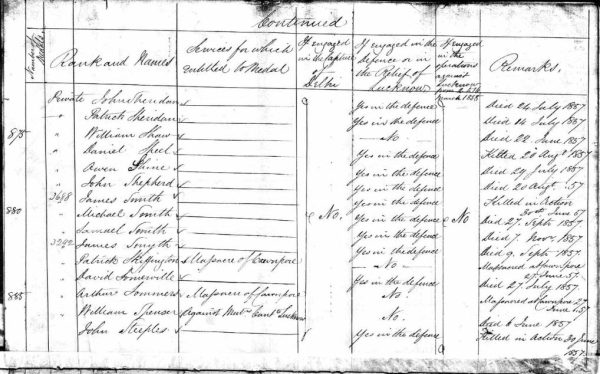 Continued
Number of Medals
Rank and Names
Services for which entitled to Medal
If engaged in the Capture of Delhi
If engaged in the defence or in the Relief of Lucknow
If engaged in the operations against Lucknow from 2 to 16 March 1858
Remarks.
Private John Sheridan Yes in the defence Died 24 July 1857
" Patrick Sheridan Yes in the defence Died 14 July 1857
875 " William Shaw No Died 22 June 1857
" Daniel Yes in the defence Killed 20 Augt 1857
" Owen Yes in the defence Died 29 July 1857
" John Shepherd Yes in the defence Died 20 Augt 57
3698 James Smith Yes in the defence Killed in Action 30th June 57
880 " Michael Smith No. Yes in the defence No Died 27 Septr 1857
" Samuel Smith Yes in the defence Died 7 Novr 1857
3292 James Smyth Yes in the defence Died 9 Septr 1857
" Patrick Massacre of Cawnpore No Massacred at Cawnpore 27 June 57
" David Somerville Yes in the defence Died 27 July 1857
885 " Arthur Sommers Massacre of Cawnpore No Massacred at Cawnpore 27 June 57
" William Spenser Against Lucknow No. Died 6 June 1857
" John Steeples Yes in the defence Killed in Action 30 June 1857